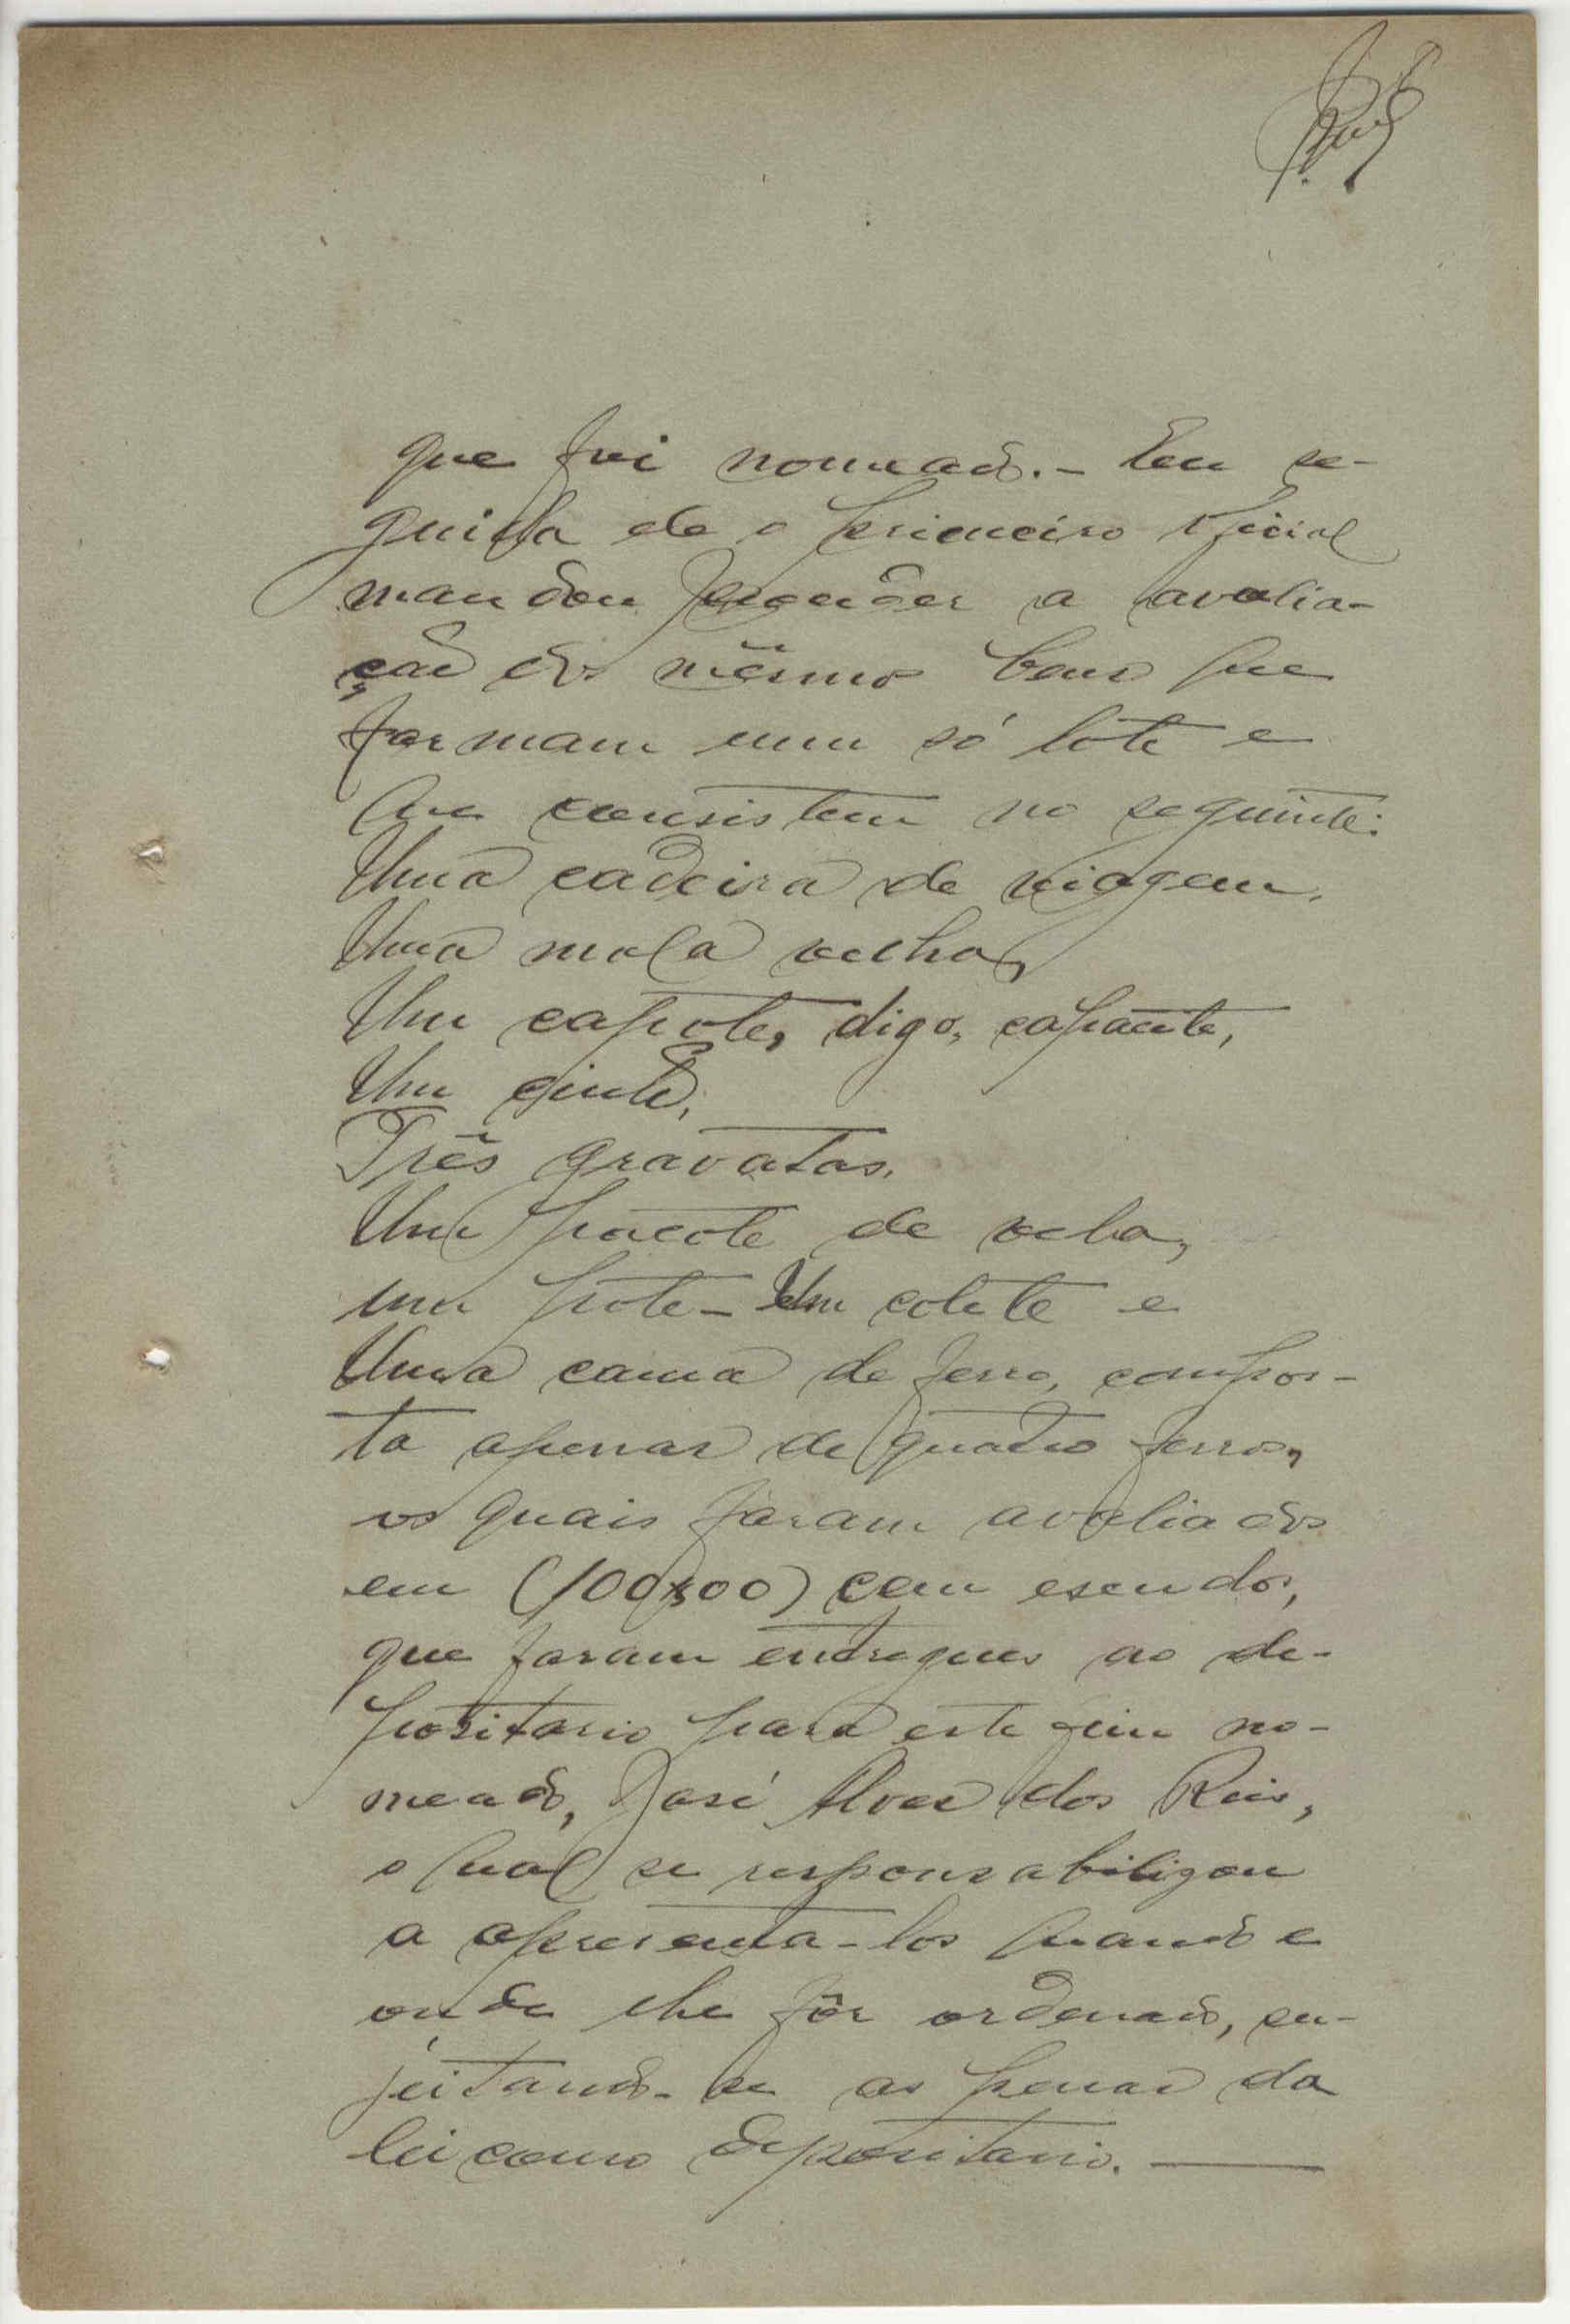 que foi nomeado.- Em se-
guida ele o primeiro oficial
mandou proceder a avalia-
ção dos mêsmos bens que
formam um só lote e
que consistem no seguinte:
Uma cadeira de viagem,
Uma mala velha,
Um capote, digo, capacete,
Um cinto,
Três gravatas,
Um pacote de vela,
um pote - Um colete e
Uma cama de ferro, compos-
ta apenas de quatro ferros,
os quais foram avaliados
em (100$00) cem escudos,
que foram entregues ao de-
positario para este fim no-
meado, José Alves dos Reis,
o qual se responsabilizou
a apresenta-los quando e
onde lhe fôr ordenado, su-
jeitando-se as penas da
lei como depositario.